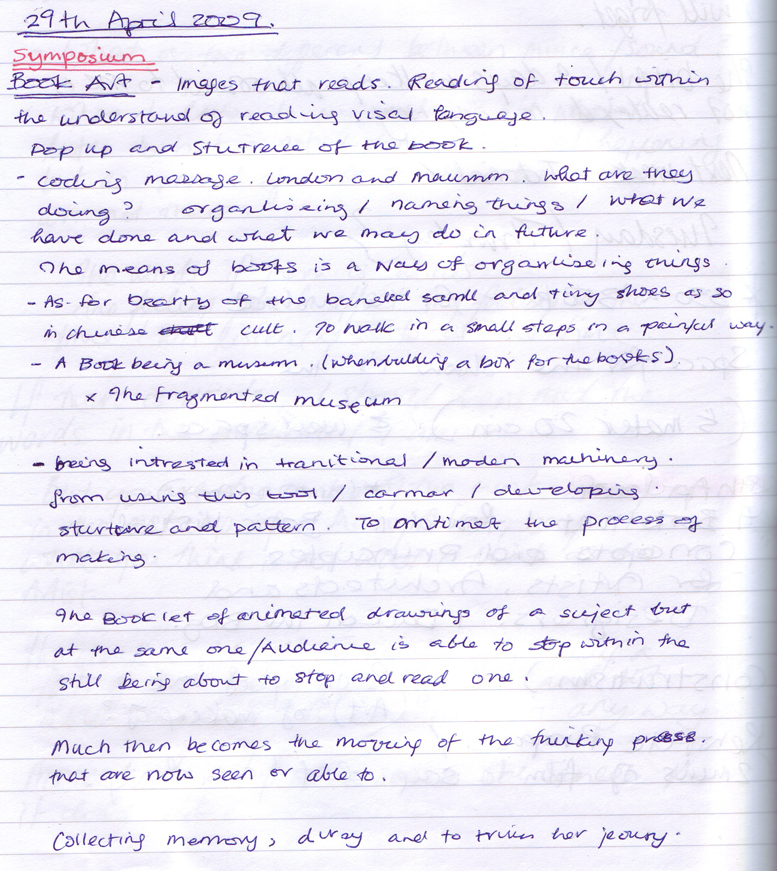 29th April 2009.
Symposium
Book Art - Images that reads. Reading of touch within
the understand of reading visal language.
Pop up and Stutreue of the book.
- coding massage. London and Maumm. what are they
doing? organliseing / nameing things / what we
have done and what we may do in future.
The means of books is a way of organliseing things.
- As for bearty of the banded samll and tiny shoes as so
in chinese cult. To walk in a small steps in a painful way.
- A Book being a museum. (when bulding a box for the books).
x The fragmented museum
- being intrested in tranitional / moden machinery.
from using this tool / carmar / developing.
sturture and pattern. To antimet the process of
making.
The Booklet of animated drawings of a suject but
at the same one/Audience is able to stop within the
still being about to stop and read one.
Much then becomes the moving of the thinking process.
that are now seen or able to.
Collecting memory, diray and to her jeoury.